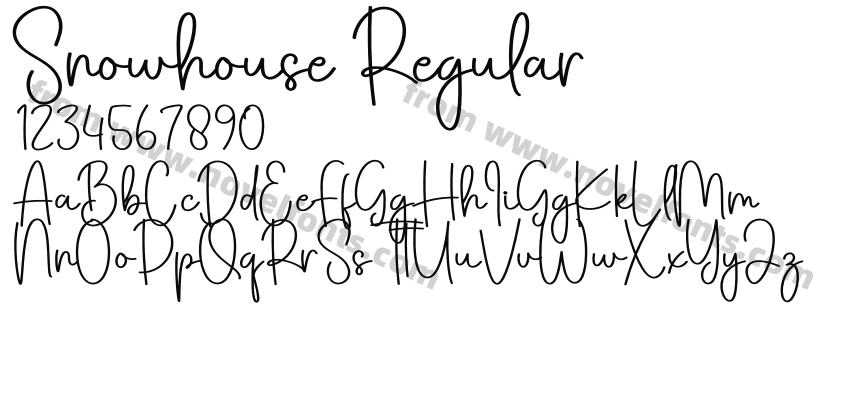 Snowhouse Regular
1234567890
AaBbCcDdEeFfGgHhIiGgKkLlMm
NnOoPpQqRrSsTtUuVvWwXxYyZz
from www.novelfonts.com
from www.novelfonts.com